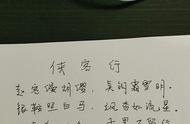 侠客行
赵客缦胡缨，吴钩霜雪明。
银鞍照白马，飒沓如流星。
千里不留行